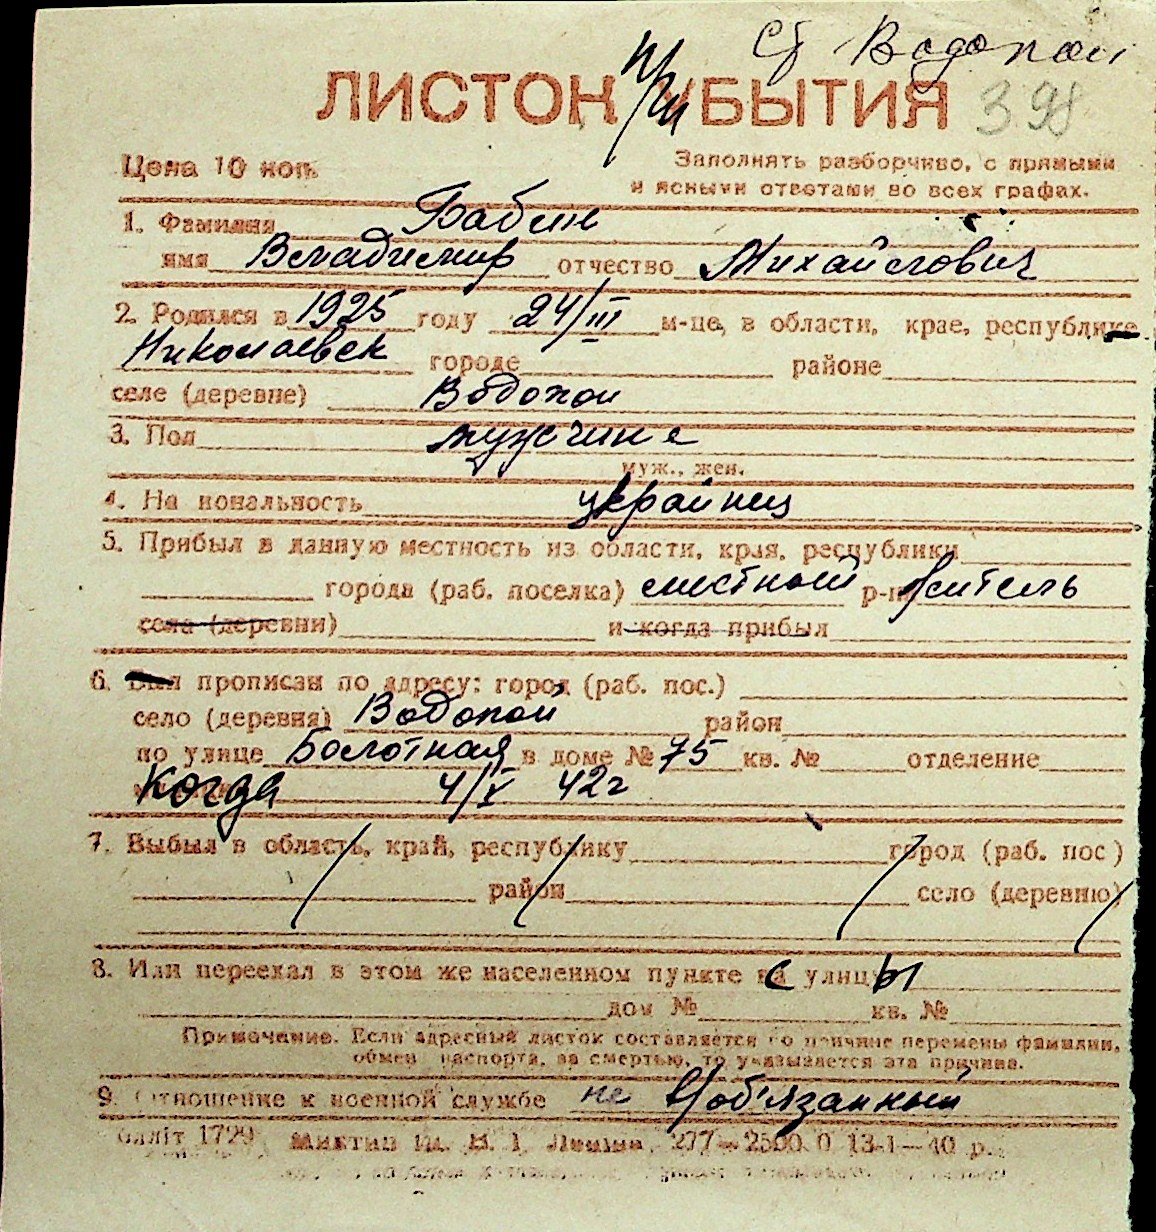 ст Водопой
ЛИСТОК при УБЫТИЯ 398
Цена 10 коп. Заполнять разборчиво, с прямыми
и ясными ответами во всех графах.
1. Фамилия Бабин
имя Владимир отчество Михайлович
2. Родился в 1925 году 24/III м-це, в области, крае, республике
Николаевск городе районе
селе (деревне) Водопои
3. Пол мужчина
муж., жен.
4. На иональность украйнец
5. Прибыл в данную местность из области, края, республики
города (раб. поселка) местный р-на житель
села (деревни) и когда прибыл
6. Был прописан по адресу: город (раб. пос.)
село (деревня) Водопой район
по улице Болотная в доме № 75 кв. № отделение
Когда 4/V 42г
7. Выбыл в область, край, республику город (раб. пос)
район село (деревню)
8. Или переехал в этом же населенном пункте с улицы
дом № кв. №
Примечание. Если адресный листок составляется по причине перемены фамилии,
обмен паспорта, за смертью, то указывается эта причина.
9. Отношение к военной службе не в/об'язанный
олліт 1729 Ленина, 277—2500.0 13-1—40 р.